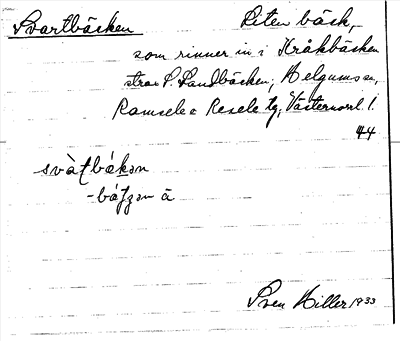 Svartbäcken Liten bäck,
som rinner in i Kråkbäcken
strax S. Sandbäcken; Helgums sn,
Ramsele o Resele tg, Västernorrl. l.
44
svàʈbǽkən
-bǽʈʂən ä
Sven Hiller 1933